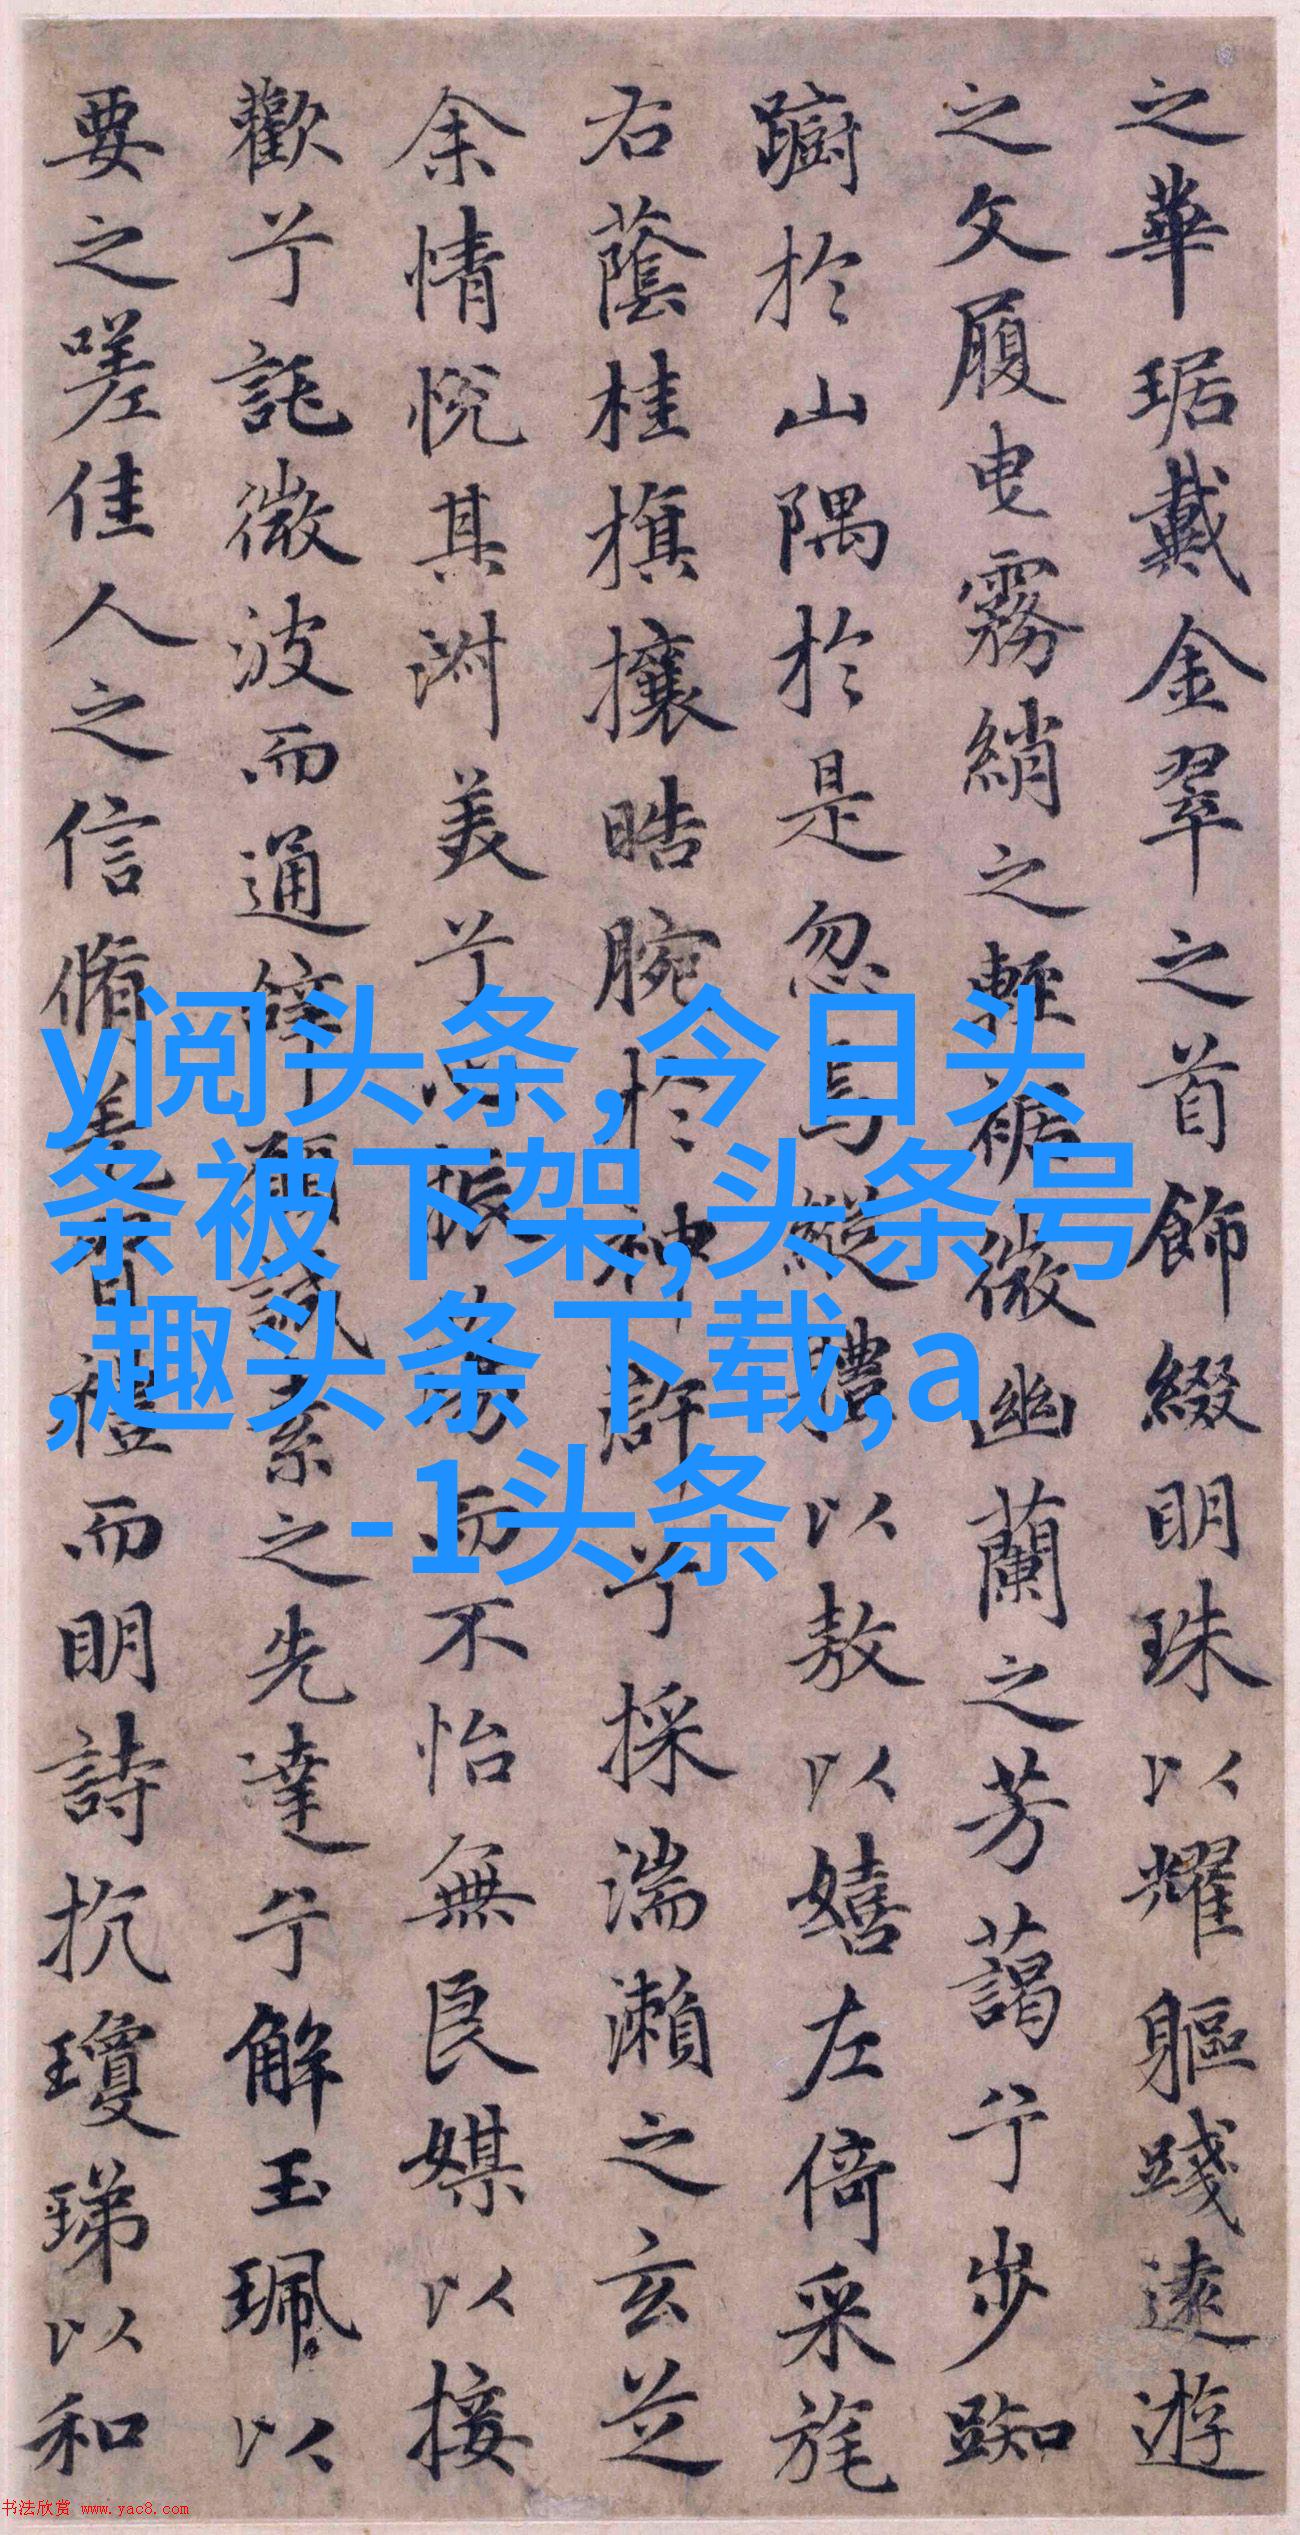 之華琚戴金翠之首飾綴明珠以耀軀踐遠遊
之文履曳霧綃之輕裾微幽蘭之芳藹兮步踟
躕於山隅於是忽焉縱體以敖以嬉左倚采旄
右蔭桂旗攘晧腕於神滸兮採湍瀨之玄芝
余情悅其淑美兮心振蕩而不怡無良媒以接
歡兮託微波而通辭願誠素之先達兮解玉珮以
要之嗟佳人之信脩羌習禮而明詩抗瓊珶以和
y阅头条,今日头
条被下架,头条号
,趣头条下载,a
-1头条
书法欣赏 www.yac8.com